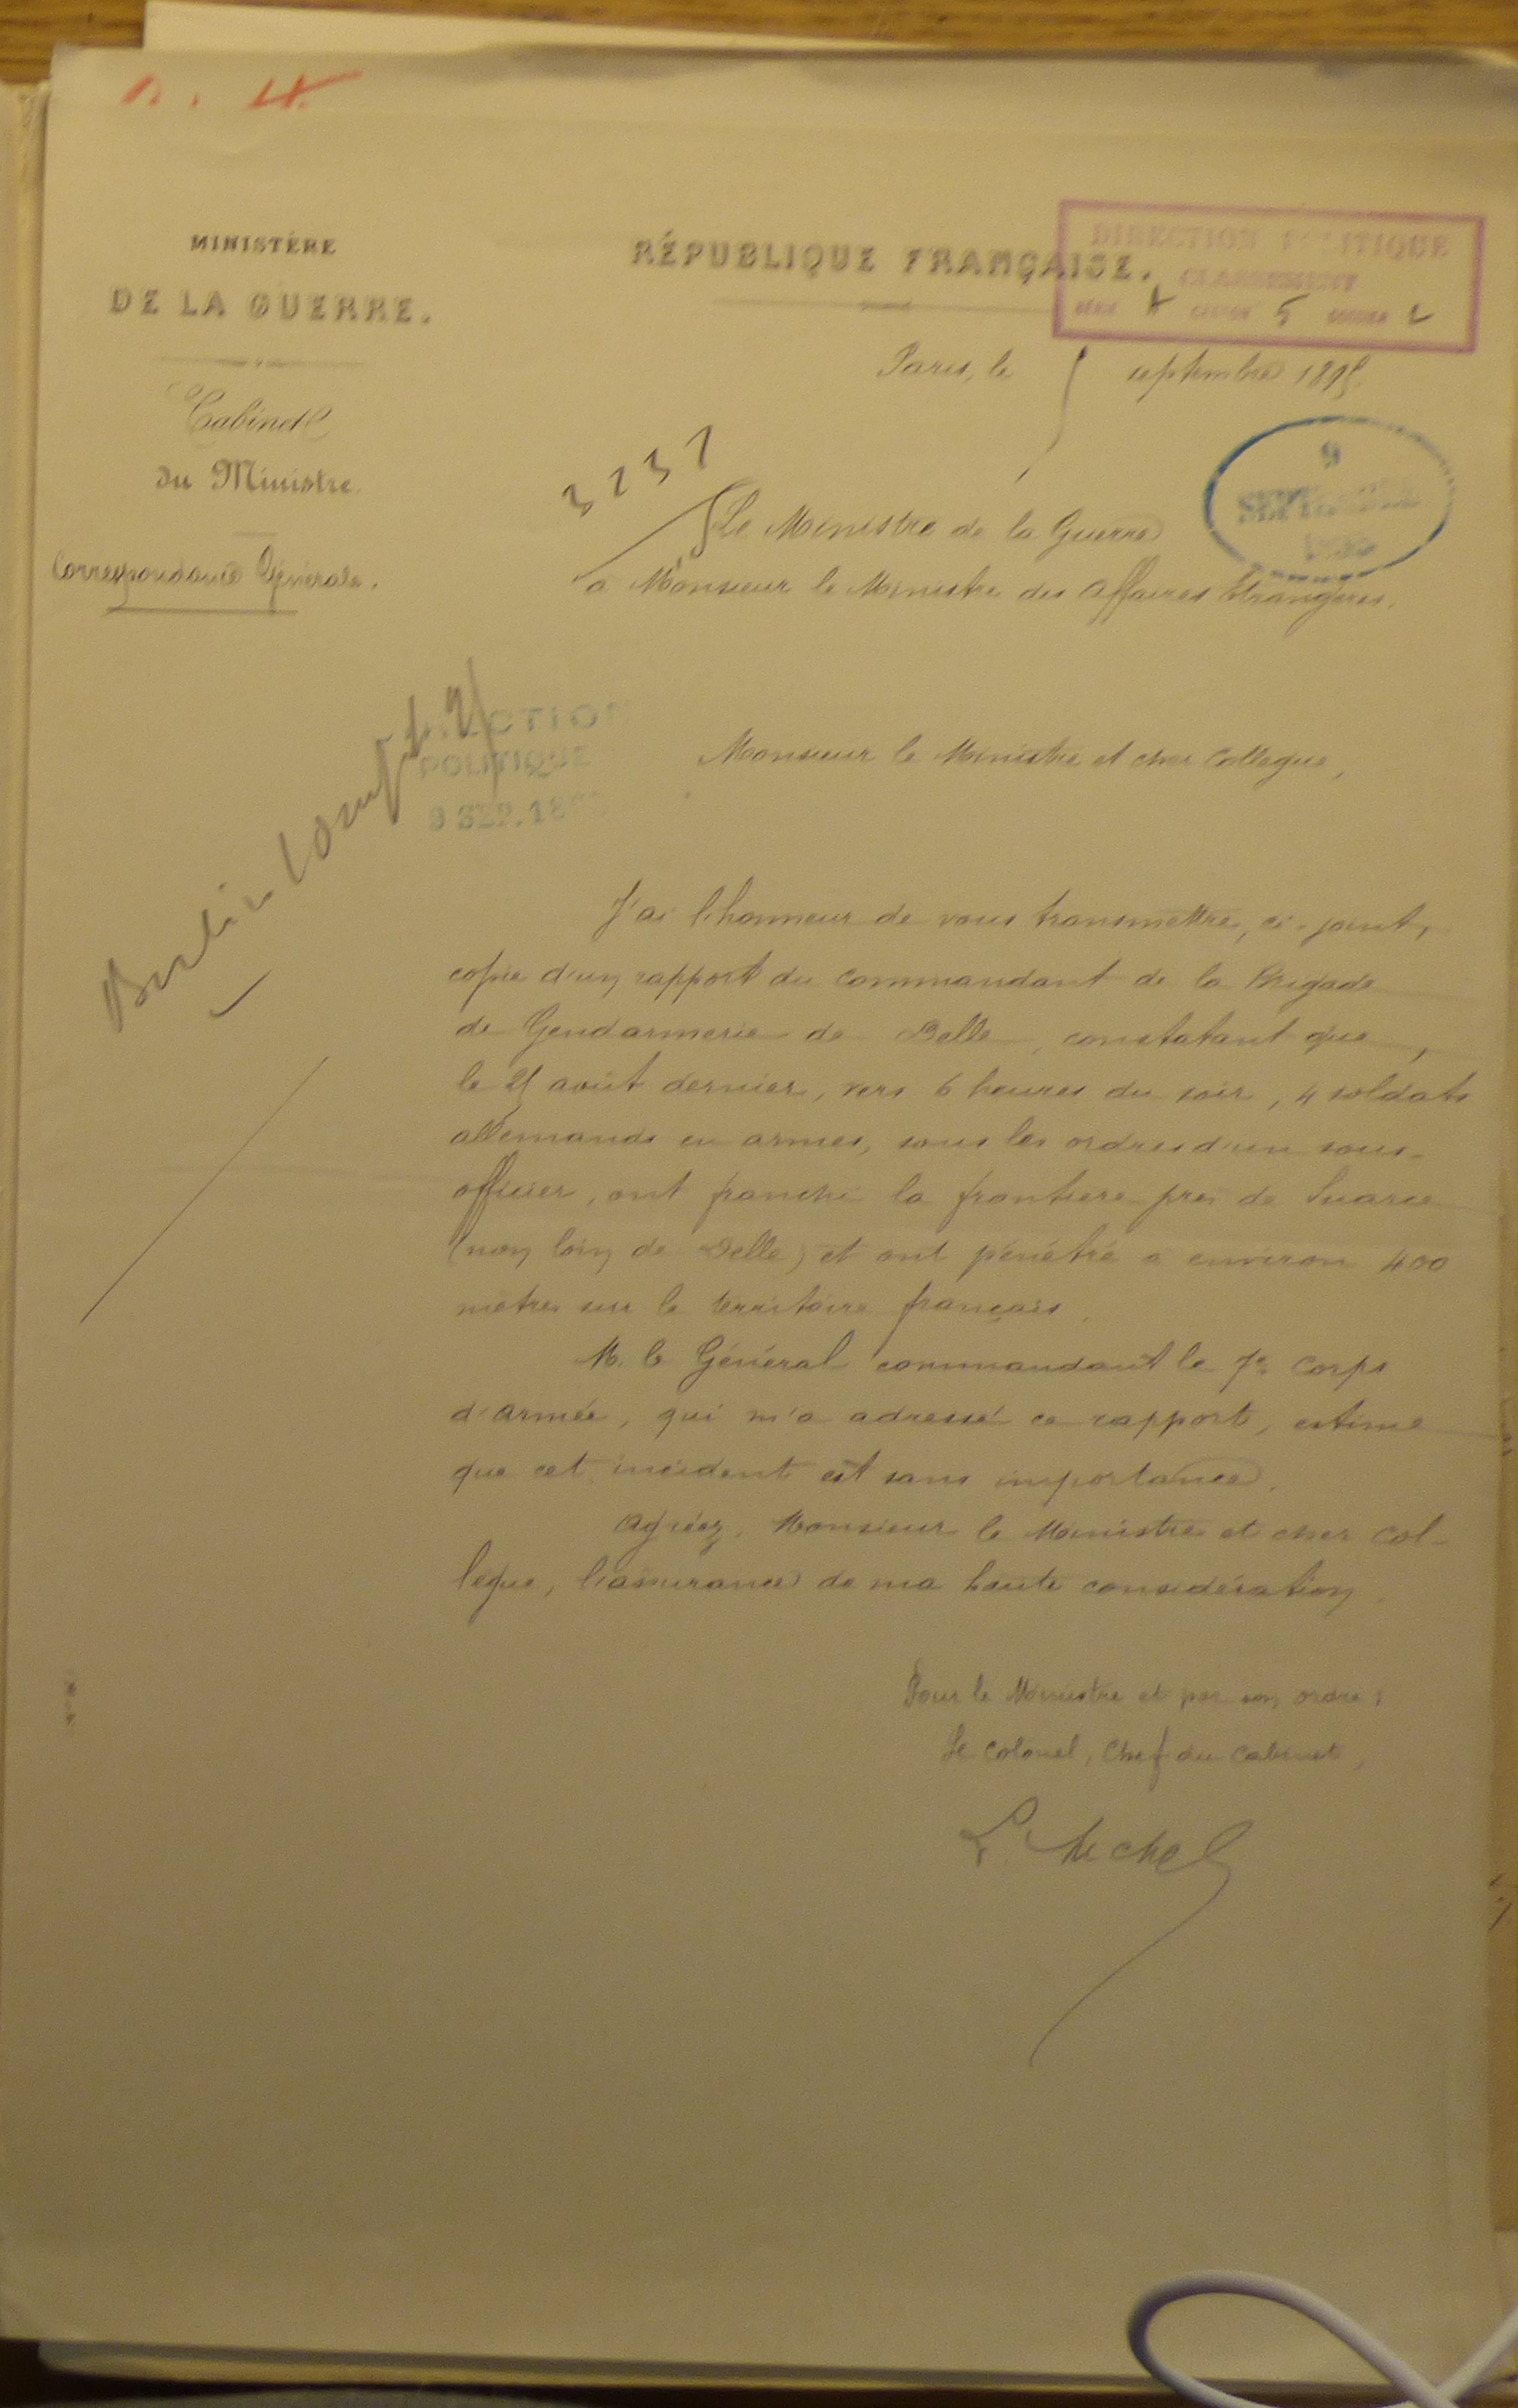 MINISTÈRE
DE LA GUERRE.
Cabinet
du Ministre.
Correspondance Générale.
RÉPUBLIQUE FRANÇAISE.
DIRECTION POLITIQUE
CLASSEMENT
5
Paris, le septembre 189
9
SEPTEMBRE
3237
Le Ministre de la Guerre
à Monsieur le Ministre des Affaires Etrangères.
DIRECTION
POLITIQUE
9 SEP. 18
Berlin
Monsieur le Ministre et cher Collègue,
J'ai l'honneur de vous transmettre, ci-joint,
copie d'un rapport du commandant de la Brigade
de Gendarmerie de Delle, constatant que,
le 21 août dernier, vers 6 heures du soir, 4 soldats
allemands en armes, sous les ordres d'un sous-
officier, ont franchi la frontière près de Suarce
(non loin de Delle) et ont pénétré à environ 400
mètres sur le territoire français.
M. le Général commandant le 7e corps
d'armée, qui m'a adressé ce rapport, estime
que cet incident est sans importance.
Agréez, Monsieur le Ministre et cher Col-
lègue, l'assurance de ma haute considération.
Pour le Ministre et par son ordre;
Le Colonel, Chef du Cabinet,
Michel